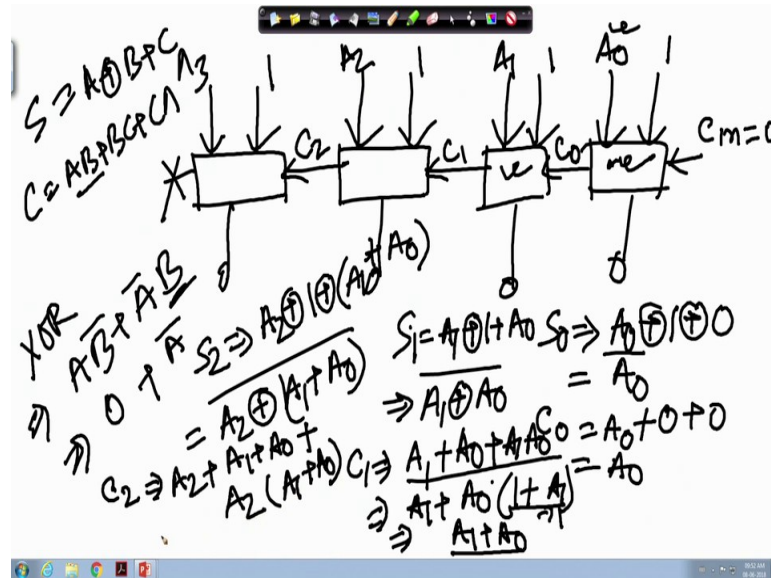 S = A⊕B⊕C
C = AB+BC+CA
A3 1 A2 1 A1 1 A0 1
C2 C1 C0 Cin=0
0 0 0
XOR
⇒ AB̅ + A̅B
⇒ 0 + A̅
S2 ⇒ A2⊕1⊕(A1+A0)
= A̅2̅ ̅⊕̅ ̅(A1+A0)
C2 ⇒ A2+A1+A0+
A2(A1+A0)
S1 = A1⊕1+A0
⇒ A̅1̅ ̅⊕̅ ̅A̅0̅
C1 ⇒ A1+A0+A1A0
⇒ A1+A0·(1+A1)
⇒1
⇒ A1+A0
S0 ⇒ A0⊕1⊕0
= A̅0
C0 = A0+0+0
= A0
09:52 AM